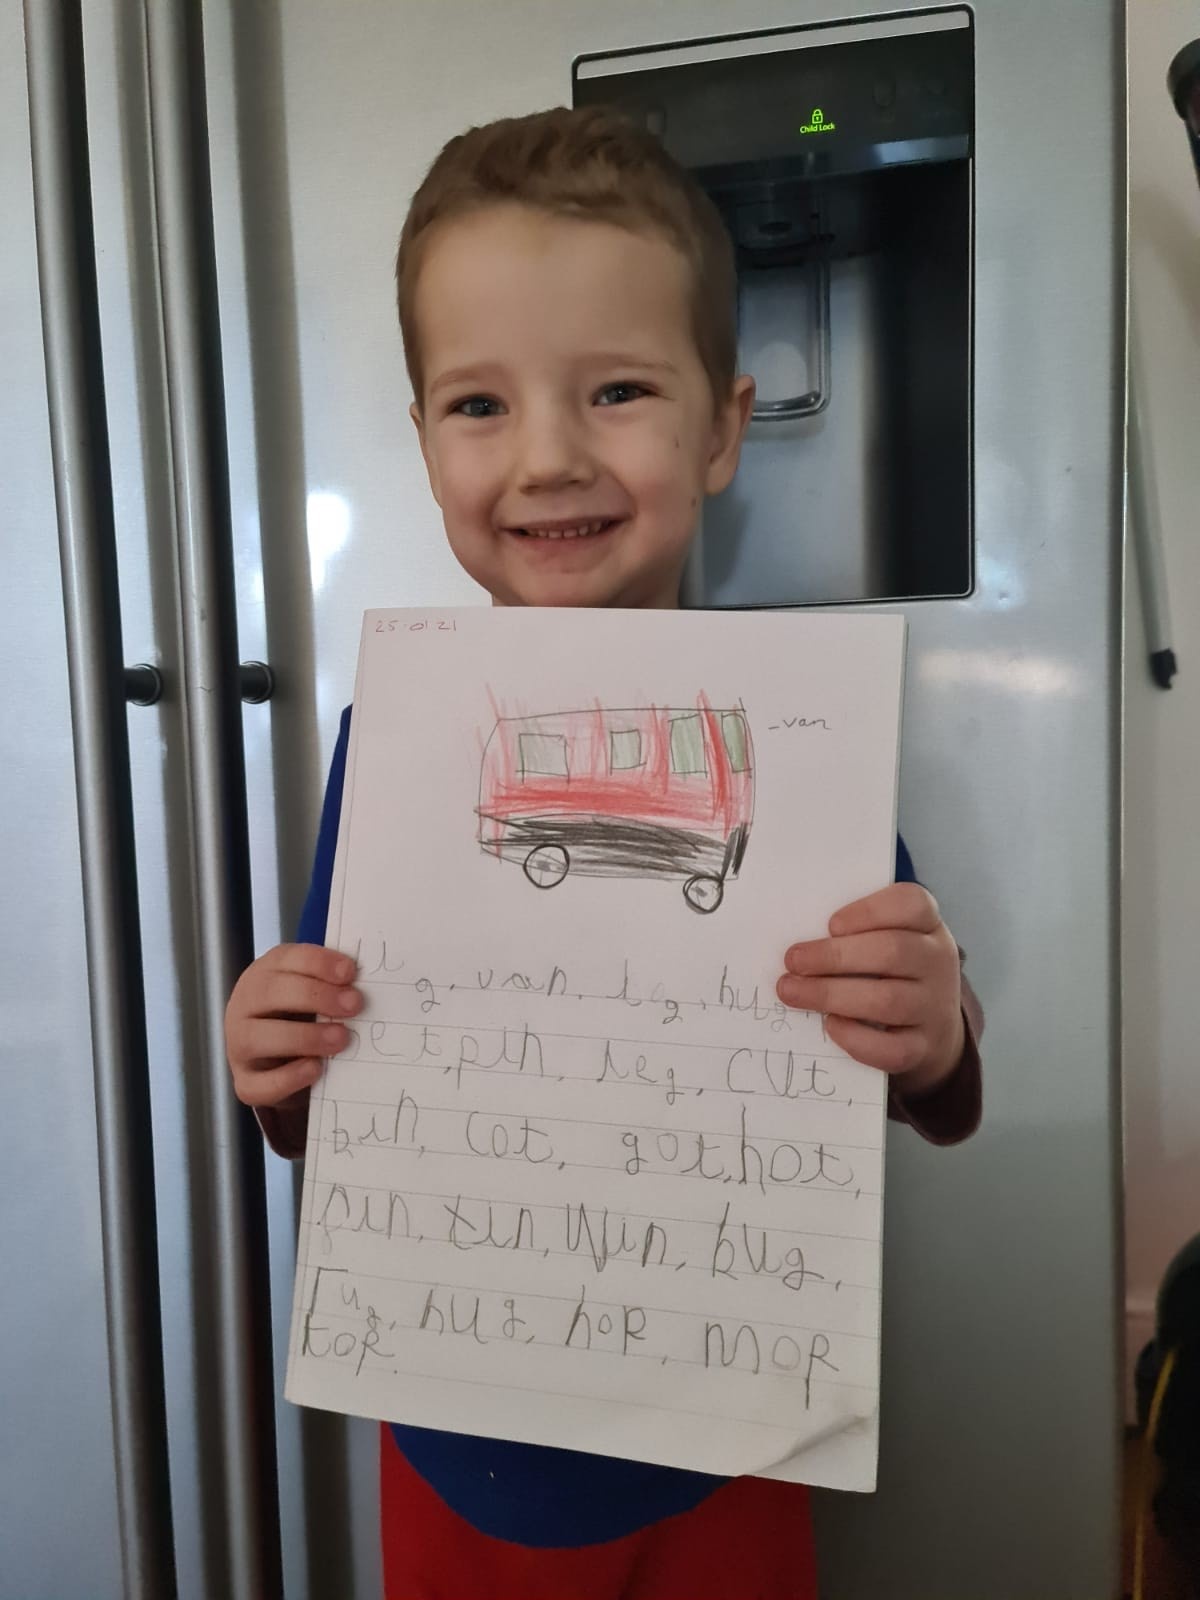 Child Lock
25-01-21
-van
van, leg, hug,
pin, leg, cut,
bin, cot, got, hot,
pin, tin, win, bug,
rug, hug, hop, mop
top.